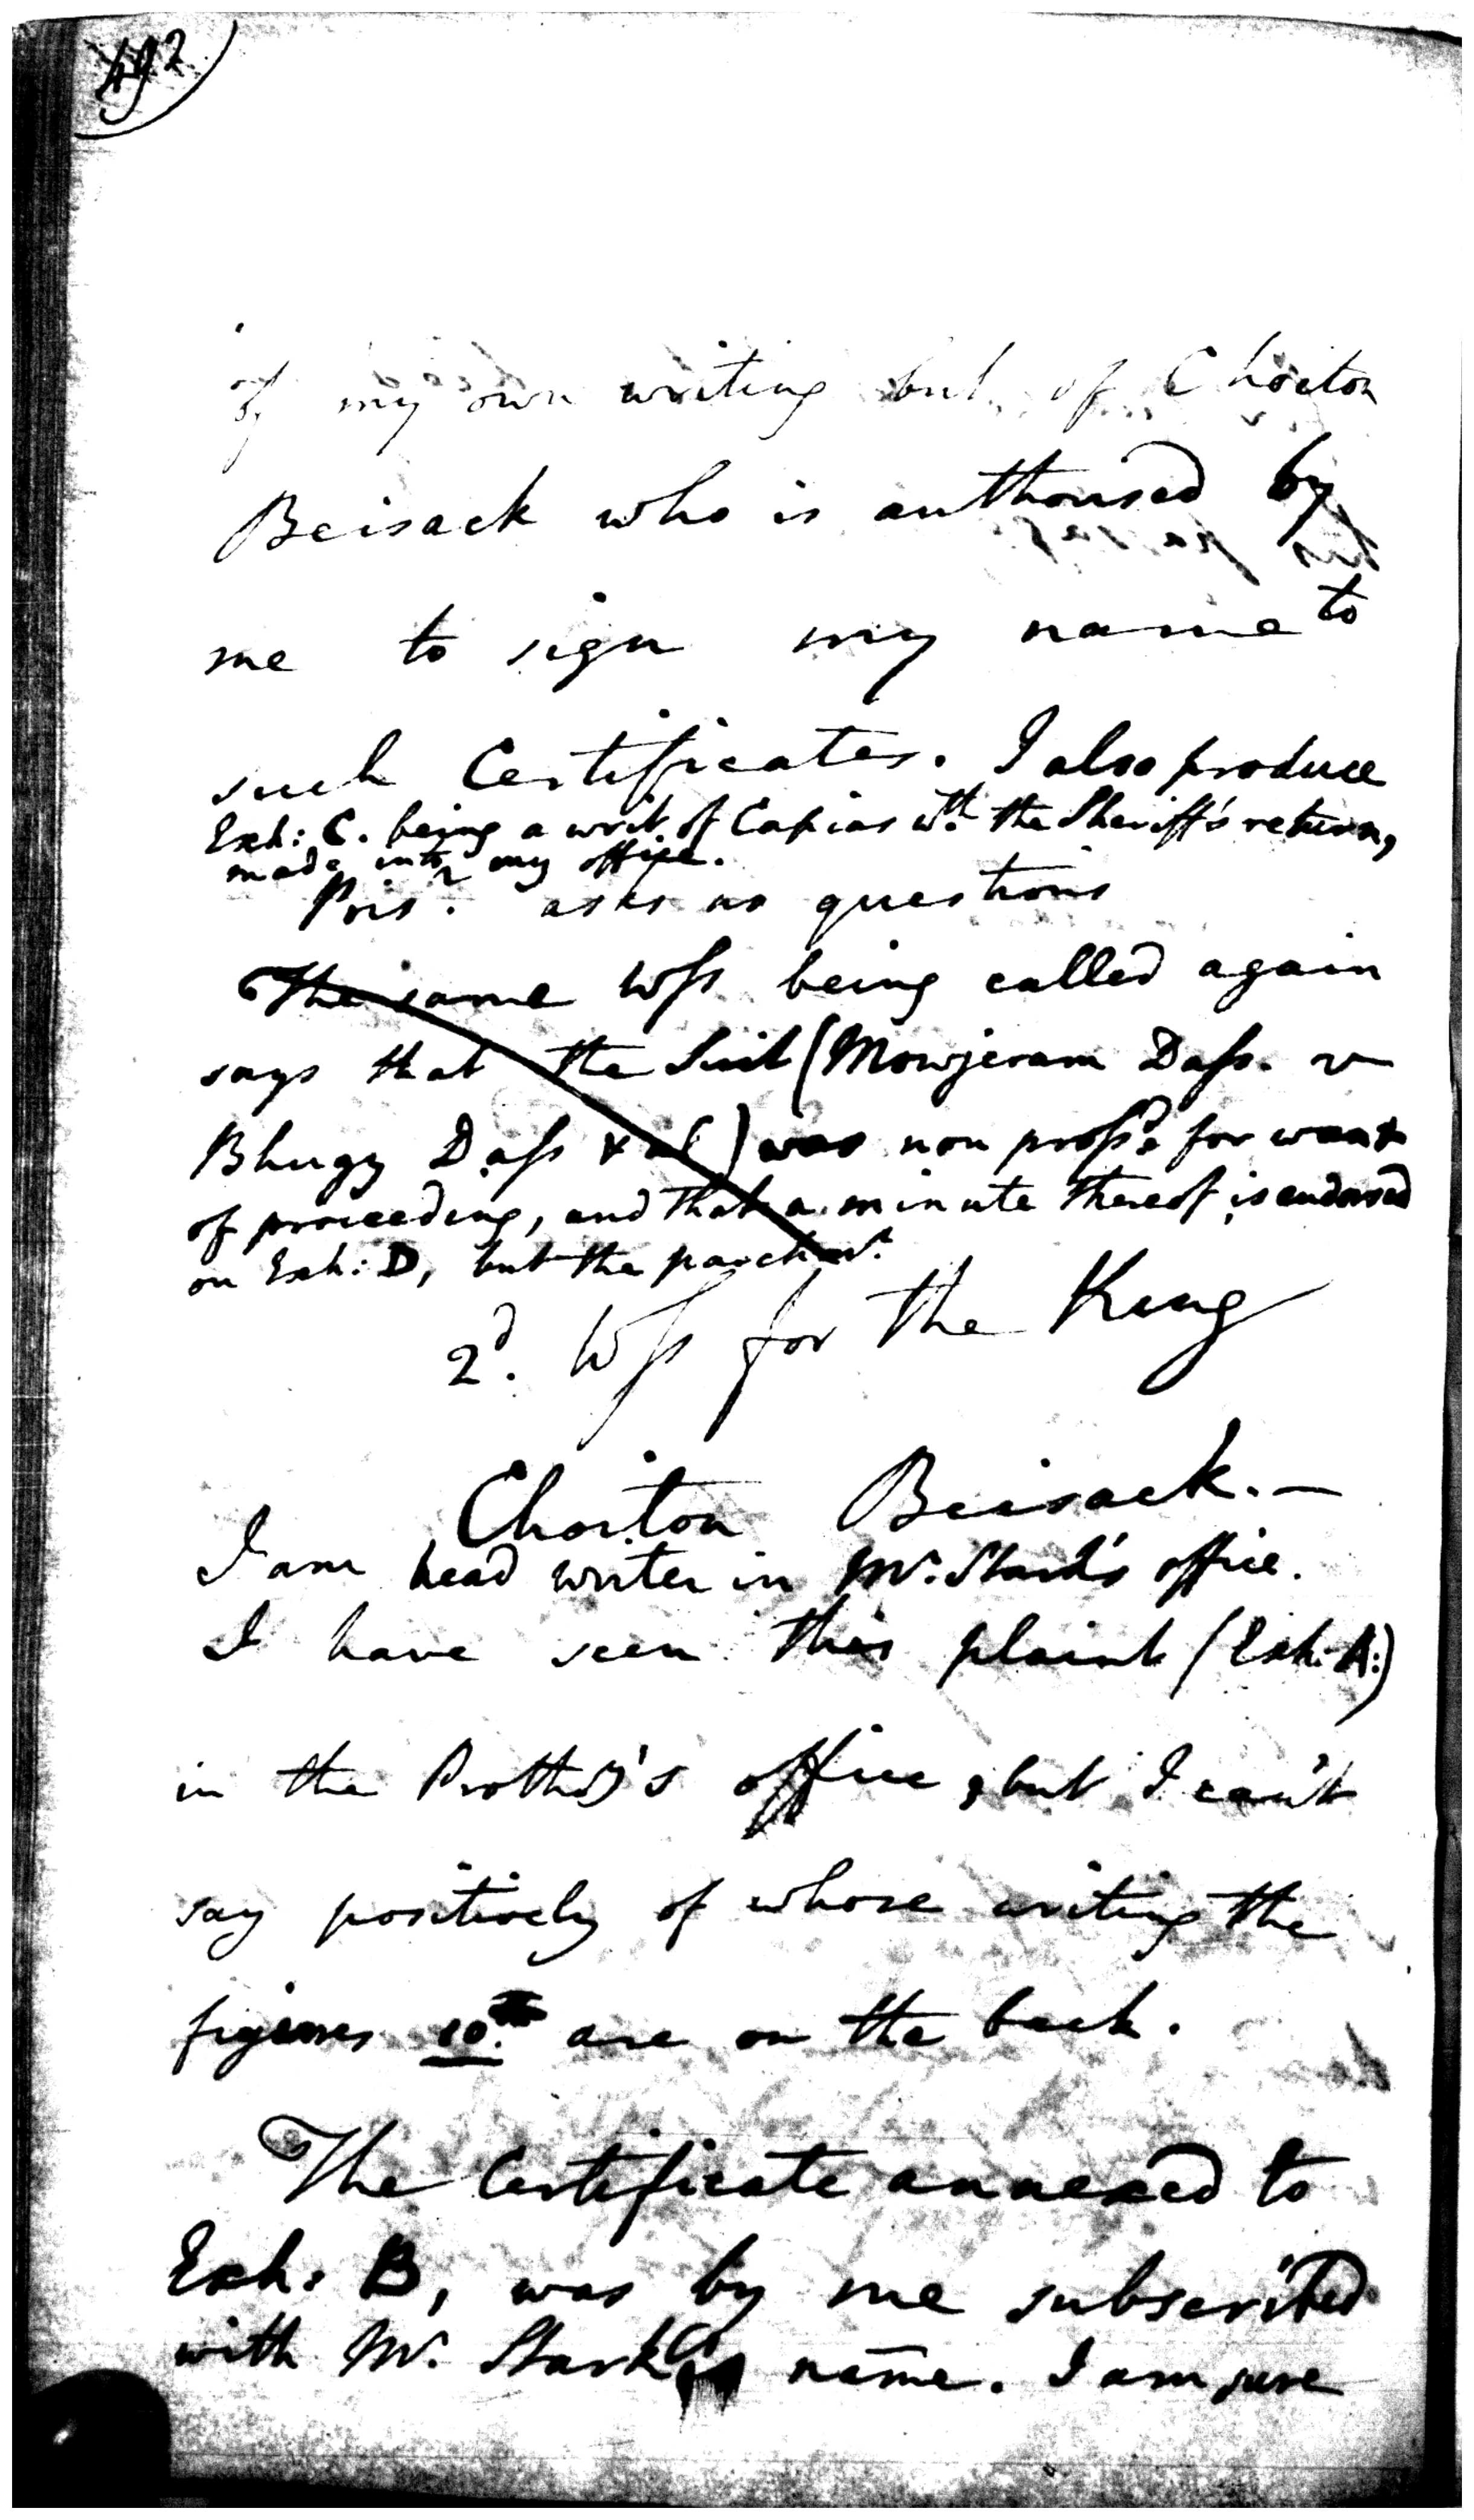 492
of my own writing but of Choiton
Beisack who is authorised by
me to sign my name to
such Certificates. I also produce
Exh: C. being a writ of Capias wth. the Sheriff's return,
made into my office.
Prisr. asks no questions
The same Wss being called again
says that the Suit (Mowjeram Dass. v
Bhugy Dass & al) was non pross'd for want
of proceeding, and that a minute thereof is endorsed
on Exh: D, but the parchmt.
2d. Wss for the King
Choiton Beisack.—
I am head writer in Mr. Stark's office.
I have seen this plaint (Exh. A:)
in the Prothy's office, but I can't
say positively of whose writing the
figures 10th. are on the back.
The Certificate annexed to
Exh. B, was by me subscribed
with Mr. Stark's name. I am sure